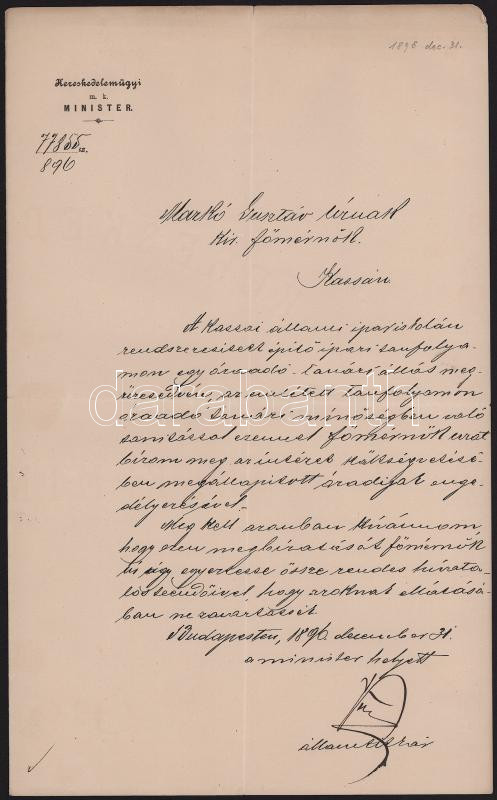 1896 dec. 31.
Kereskedelemügyi
m. k.
MINISTER.
77855 sz.
896
Markó Gusztáv Úrnak
Kir. főmérnök.
Kassán.
A Kassai állami ipariskolán
rendszeresitett épitő ipari tanfolya-
mon egy óraadó tanári állás meg-
üresedvén, az emlitett tanfolyamon
óraadó tanári minőségben való
tanitással ezennel főmérnök urat
bizom meg az intézet költségvetésé-
ben megállapitott óradijat enge-
délyezésével.
Meg kell azonban kivánnom
hogy ezen megbizatását főmérnök
úr úgy egyeztesse össze rendes hivata-
los teendőivel, hogy azoknak ellátásá-
ban ne zavartassék.
Budapesten, 1896. december 31.
a minister helyett
államtitkár
darabanth